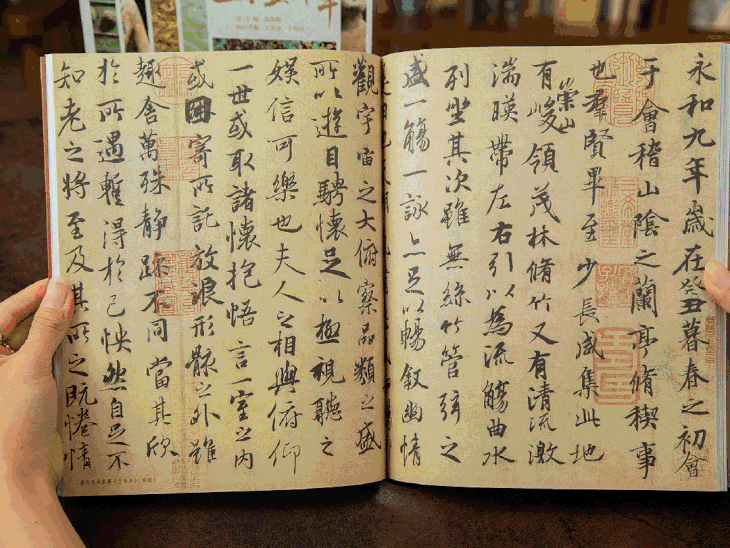 永和九年歲在癸丑暮春之初會
于會稽山陰之蘭亭脩稧事
也羣賢畢至少長咸集此地
有崇山峻領茂林脩竹又有清流激
湍暎帶左右引以為流觴曲水
列坐其次雖無絲竹管弦之
盛一觴一詠亦足以暢敘幽情
觀宇宙之大俯察品類之盛
所以遊目騁懷足以極視聽之
娛信可樂也夫人之相與俯仰
一世或取諸懷抱悟言一室之內
或因寄所託放浪形骸之外雖
趣舍萬殊静躁不同當其欣
於所遇蹔得於己怏然自足不
知老之將至及其所之既惓情